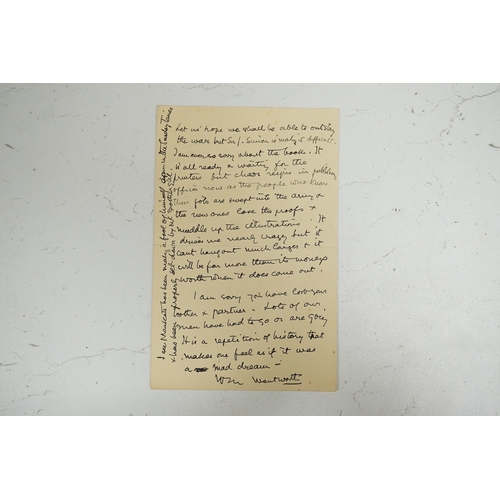 Let us hope we shall be able to outstay
the war but Sir J. Simon is making it difficult.
I am ever so sorry about the book. It
is all ready & waiting for the
printers but chaos reigns in publishing
offices now as the people who knew
their jobs are swept into the army &
the new ones lose the proofs &
muddle up the illustrations. It
drives me nearly crazy, but it
cant hang out much longer & it
will be far more than its moneys
worth when it does come out.
I am sorry you have lost your
brother & partner. Lots of our
men have had to go or are going
It is a repetition of history that
makes one feel as if it was
a mad dream —
Wm Wentworth
I see has been making a fool of himself again in the Sunday Times
& has been properly set down by Mr